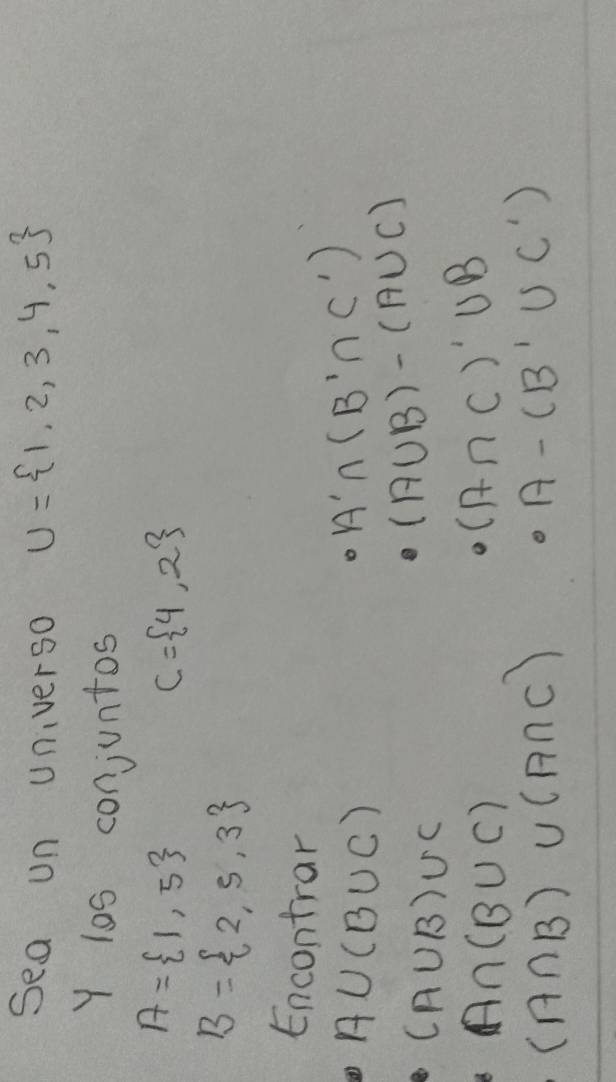 Sea un universo U={1,2,3,4,5}
Y los conjuntos
A={1,5} C={4,2}
B={2,5,3}
Encontrar
• A∪(B∪C) • A'∩(B'∩C')
• (A∪B)∪C • (A∪B)-(A∪C)
• A∩(B∪C) • (A∩C)'∪B
• (A∩B)∪(A∩C) • A-(B'∪C')